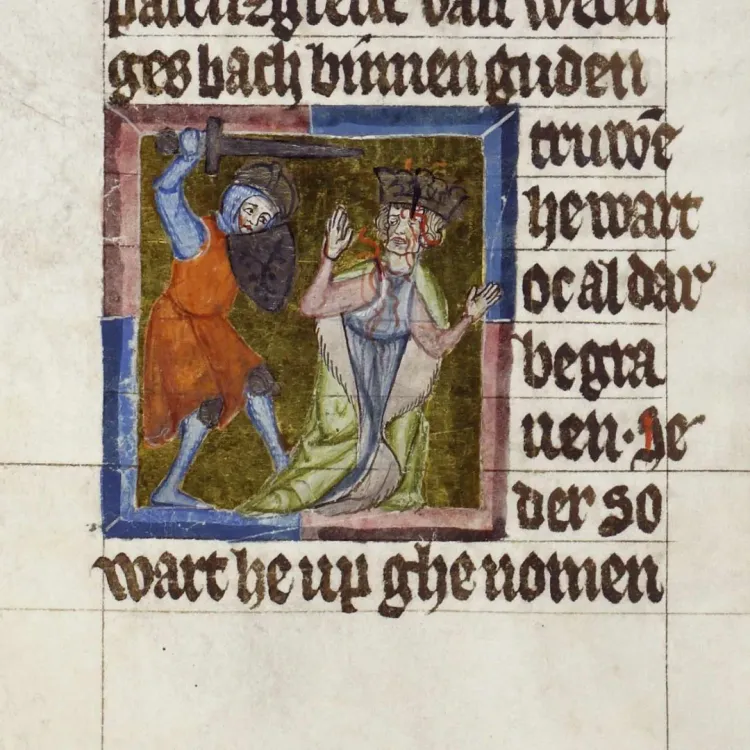 palenzgreue van wetelin
ges bach binnen guden
truwē
he wart
oc al dar
begra
uen· Se
der so
wart he up ghe nomen